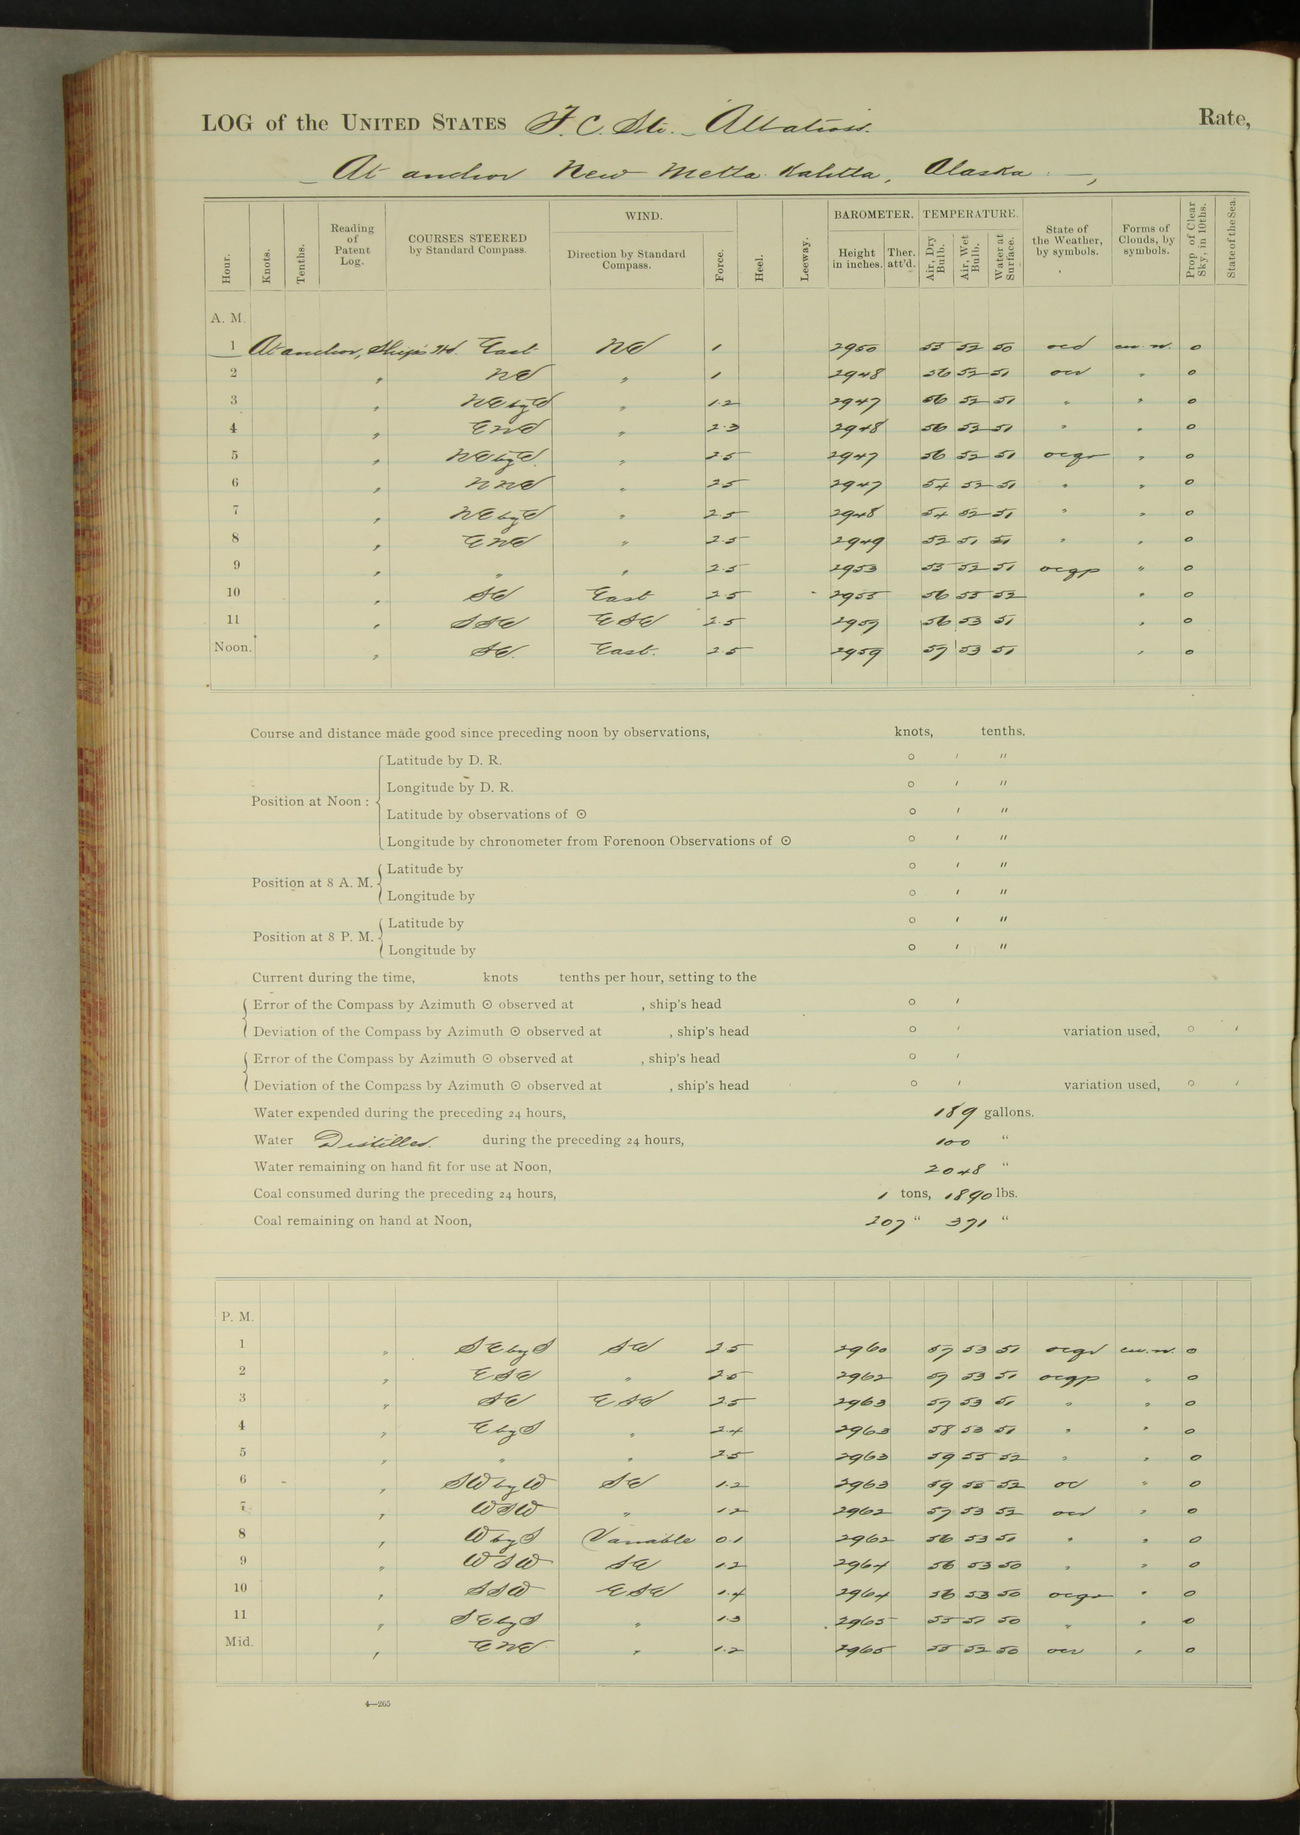 LOG of the UNITED STATES F. C. Str. Albatross. Rate,
At anchor New Metla Kahtla, Alaska
WIND. BAROMETER. TEMPERATURE.
Hour. Knots. Tenths. Reading of Patent Log. COURSES STEERED by Standard Compass. Direction by Standard Compass. Force. Heel. Leeway. Height in inches. Ther. att'd. Air, Dry Bulb. Air, Wet Bulb. Water at Surface. State of the Weather, by symbols. Forms of Clouds, by symbols. Prop. of Clear Sky, in 10ths. State of the Sea.
A. M.
1 At anchor, Ship's Hd. East NE 1 2950 55 52 50 ocd cu.n. 0
2 " NE " 1 2948 56 52 51 ocr " 0
3 " NE by E " 1.2 2947 56 52 51 " " 0
4 " ENE " 2.3 2948 56 52 51 " " 0
5 " NE by E. " 2.5 2947 56 52 51 ocqr " 0
6 " NNE " 2.5 2947 54 52 51 " " 0
7 " NE by E " 2.5 2948 54 52 51 " " 0
8 " ENE " 2.5 2949 52 51 51 " " 0
9 " " " 2.5 2953 53 52 51 ocqp " 0
10 " SE East 2.5 2955 56 55 52 " 0
11 " SSE ESE 2.5 2957 56 53 51 " 0
Noon. " SE. East. 2.5 2959 57 53 51 " 0
Course and distance made good since preceding noon by observations, knots, tenths.
Position at Noon :
Latitude by D. R. ° ′ ″
Longitude by D. R. ° ′ ″
Latitude by observations of ☉ ° ′ ″
Longitude by chronometer from Forenoon Observations of ☉ ° ′ ″
Position at 8 A. M.
Latitude by ° ′ ″
Longitude by ° ′ ″
Position at 8 P. M.
Latitude by ° ′ ″
Longitude by ° ′ ″
Current during the time, knots tenths per hour, setting to the
Error of the Compass by Azimuth ☉ observed at , ship's head ° ′
Deviation of the Compass by Azimuth ☉ observed at , ship's head ° ′ variation used, ° ′
Error of the Compass by Azimuth ☉ observed at , ship's head ° ′
Deviation of the Compass by Azimuth ☉ observed at , ship's head ° ′ variation used, ° ′
Water expended during the preceding 24 hours, 189 gallons.
Water Distilled. during the preceding 24 hours, 100 "
Water remaining on hand fit for use at Noon, 2048 "
Coal consumed during the preceding 24 hours, 1 tons, 1890 lbs.
Coal remaining on hand at Noon, 207 " 371 "
P. M.
1 " SE by S SE 2.5 2960 57 53 51 cu.n. 0
2 " ESE " 2.5 2962 57 53 51 ocqp " 0
3 " SE ESE 2.5 2963 57 53 51 " " 0
4 " E by S " 2.4 2963 58 53 51 " " 0
5 " " " 2.5 2963 59 55 52 " " 0
6 " SW by W SE 1.2 2963 59 55 52 oc " 0
7 " WSW " 1.2 2962 57 53 52 ocd " 0
8 " W by S Variable 0.1 2962 56 53 51 " " 0
9 " WSW SE 1.2 2964 56 53 50 " " 0
10 " SSW ESE 1.4 2964 56 53 50 ocqr " 0
11 " SE by S " 1.3 2965 55 51 50 " " 0
Mid. " ENE " 1.2 2965 55 52 50 ocr " 0
4—265